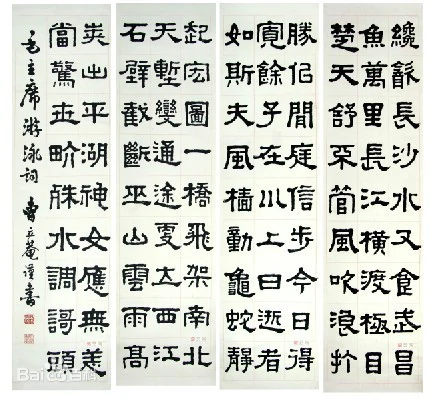 纔飲長沙水又食武昌
魚萬里長江橫渡極目
楚天舒不管風吹浪打
勝佀閒庭信步今日得
寬餘子在川上曰逝者
如斯夫風檣動龜蛇靜
起宏圖一橋飛架南北
天塹變通途更立西江
石壁截斷巫山雲雨高
峽出平湖神女應無恙
當驚世界殊水調謌頭
毛主席游泳詞 曹立庵謹書
Bai百科